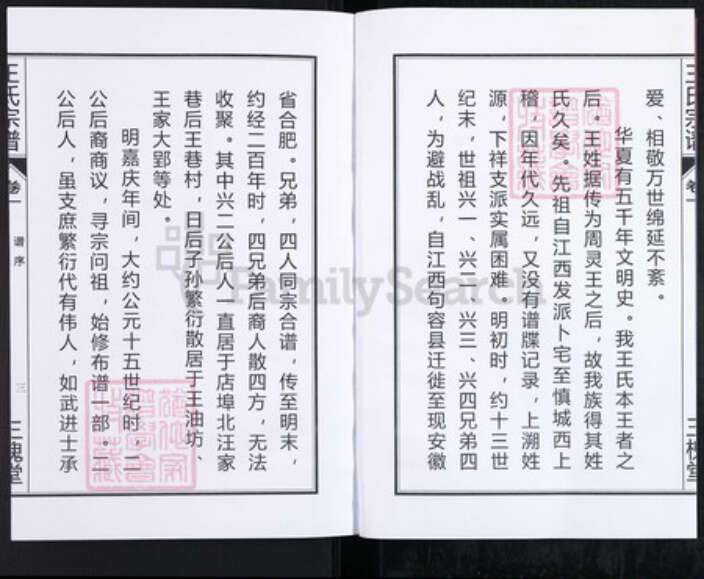 爱、相敬万世绵延不紊。
华夏有五千年文明史。我王氏本王者之
后。王姓据传为周灵王之后，故我族得其姓
氏久矣。先祖自江西发派卜宅至慎城西上
稽，因年代久远，又没有谱牒记录，上溯姓
源，下祥支派实属困难。明初时，约十三世
纪末，世祖兴一、兴二、兴三、兴四兄弟四
人，为避战乱，自江西句容县迁徙至现安徽
省合肥。兄弟，四人同宗合谱，传至明末，
约经二百年时，四兄弟后裔人散四方，无法
收聚。其中兴二公后人一直居于店埠北汪家
巷后王巷村，日后子孙繁衍散居于王油坊、
王家大郢等处。
明嘉庆年间，大约公元十五世纪时，二
公后裔商议，寻宗问祖，始修布谱一部。二
公后人，虽支庶繁衍代有伟人，如武进士承
王氏宗谱
卷一
谱序
三
三槐堂
王氏宗谱
卷一
三槐堂
FamilySearch